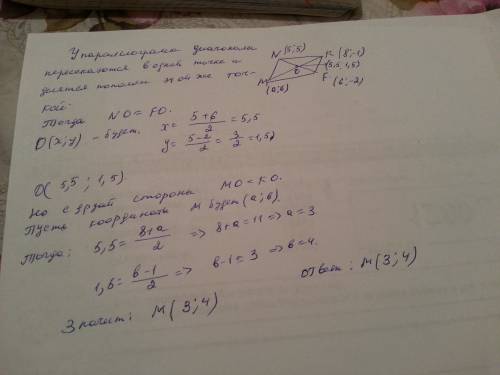 У параллелограма диагонали
пересекаются в одной точке и
делятся пополам этой же точ-
кой.
N (5;5)
K (8;-1)
(5,5;1,5)
O
F
(6;-2)
M
(a;b)
Тогда NO = FO.
O(x;y) - будет, x = 5+6/2 = 5,5
y = 5-2/2 = 3/2 = 1,5
O( 5,5 ; 1,5).
Но с другой стороны MO = KO.
Пусть координаты M будет (a;b).
Тогда: 5,5 = 8+a/2 => 8+a = 11 => a = 3
1,5 = b-1/2 => b-1 = 3 => b = 4.
Значит: M(3;4)
Ответ: M(3;4)